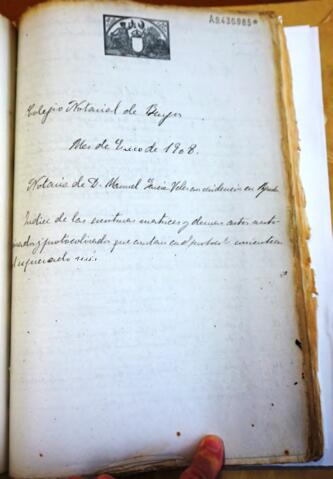 A9430985*
Colegio Notarial de Burgos
Mes de Enero de 1908.
Notaria de D. Manuel Garcia con residencia en
Indice de las escrituras matrices y demas actos auto
rizados y protocolizados que constan en el protocolo corriente en
el expresado mes.